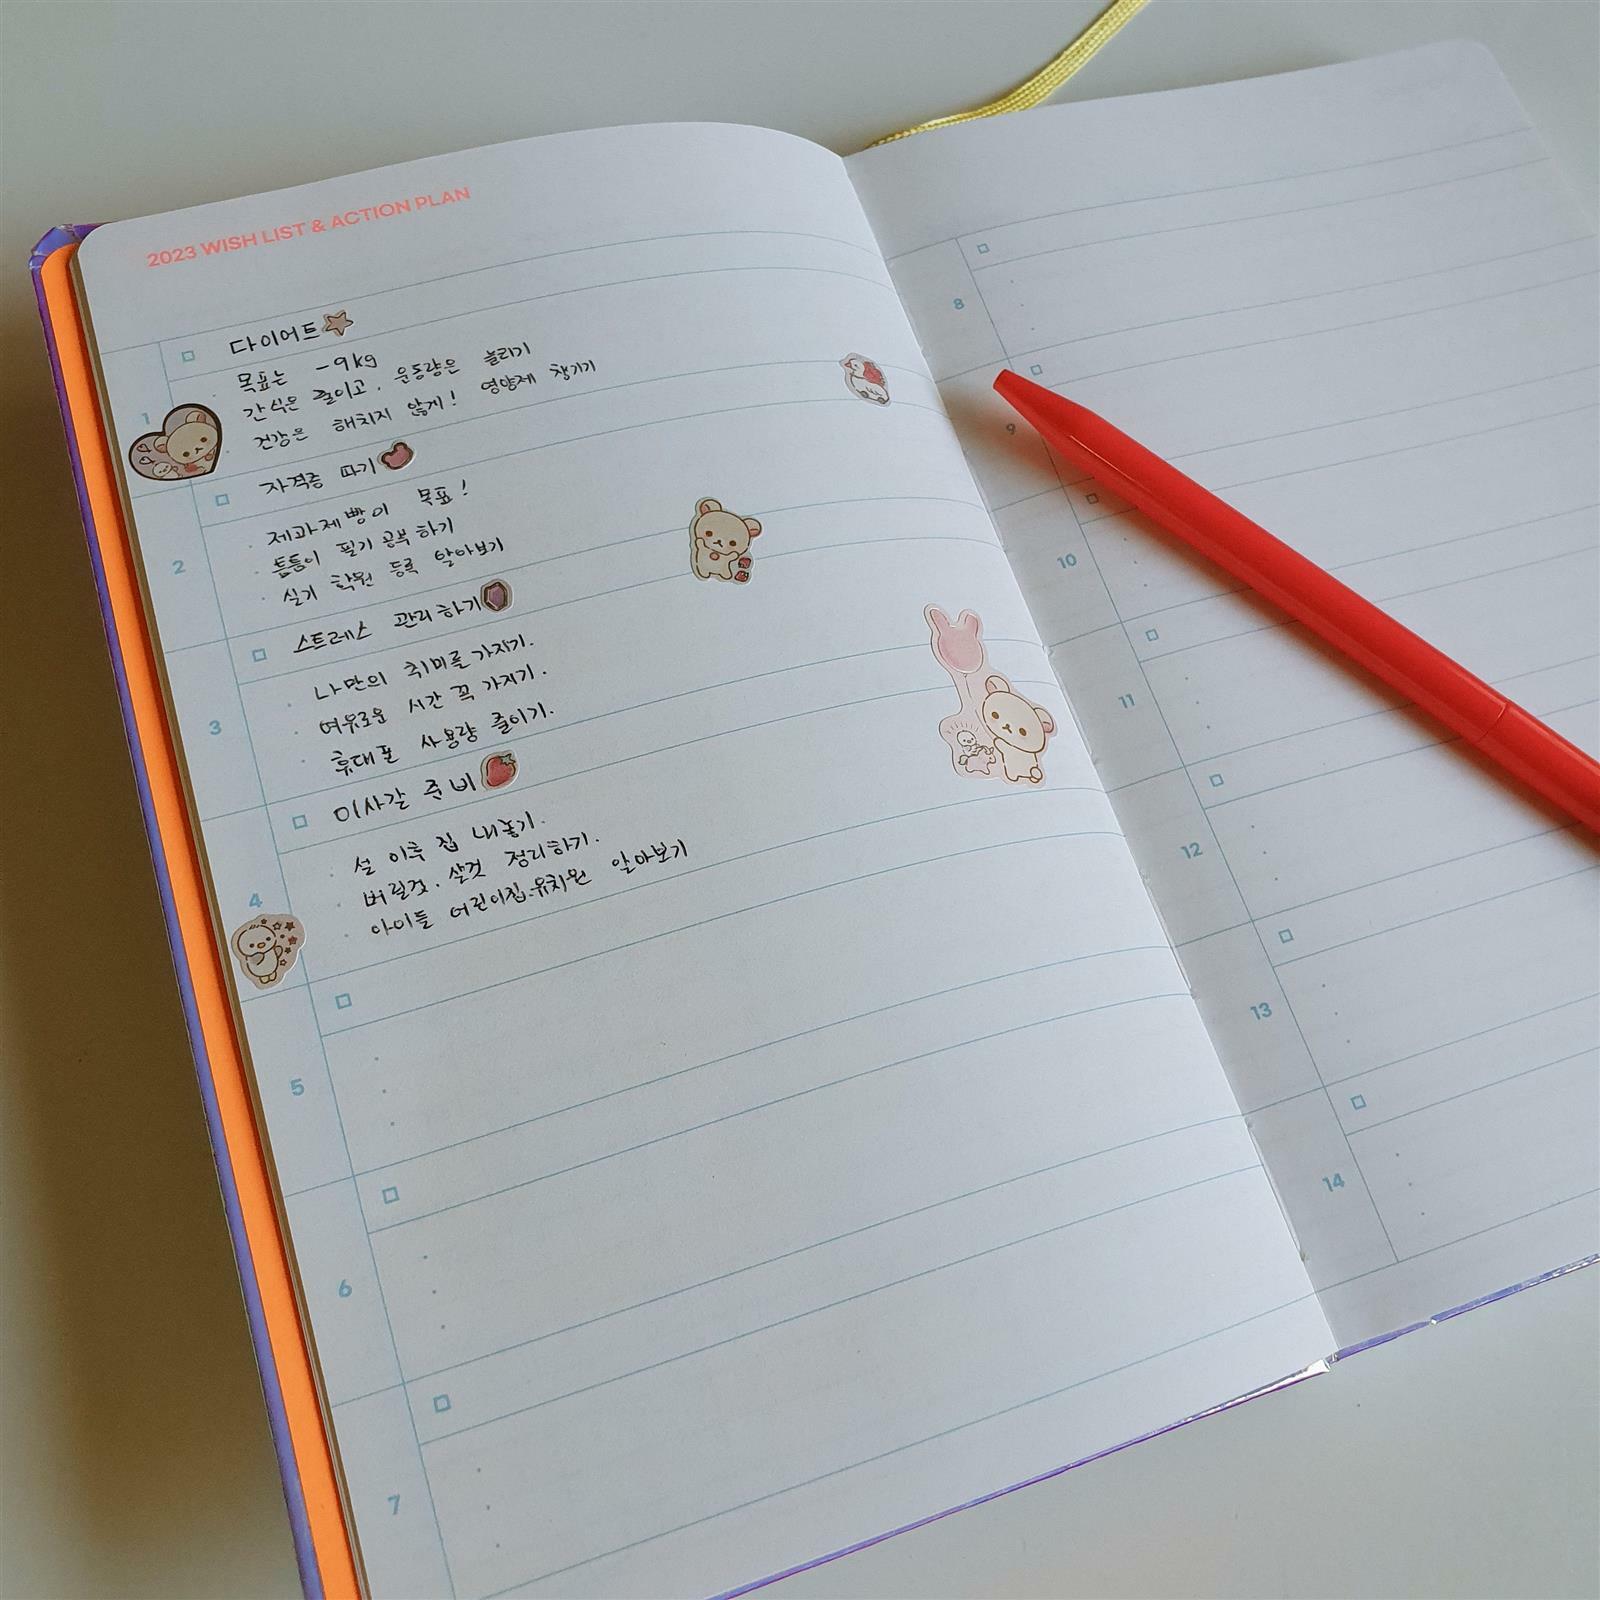 2023 WISH LIST & ACTION PLAN
다이어트
목표는 -9kg
간식은 줄이고, 운동량은 늘리기
1
건강은 해치지 않게! 영양제 챙기기
자격증 따기
제과제빵이 목표!
2
틈틈이 필기 공부하기
실기 학원 등록 알아보기
스트레스 관리하기
나만의 취미를 가지기.
3
여유로운 시간 꼭 가지기.
휴대폰 사용량 줄이기.
이사갈 준비
설 이후 집 내놓기.
4
버릴것, 살것 정리하기.
아이들 어린이집, 유치원 알아보기
5
6
7
8
9
10
11
12
13
14